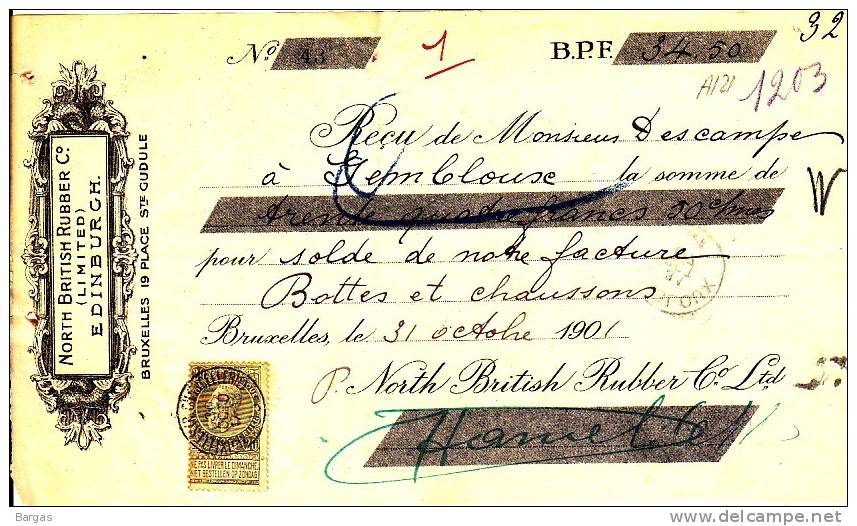 32
No 43 1 B.P.F. 34.50
A121 1203
Reçu de Monsieur Descampe
à Gembloux la somme de
trente quatre francs 50 c/mes
W
pour solde de notre facture
Bottes et chaussons
Bruxelles, le 31 octobre 1901
P. North British Rubber Co. Ltd
NORTH BRITISH RUBBER Co.
(LIMITED)
EDINBURGH.
BRUXELLES 19 PLACE STE GUDULE
NE PAS LIVRER LE DIMANCHE
NIET BESTELLEN OP ZONDAG
Bargas
www.delcampe.net